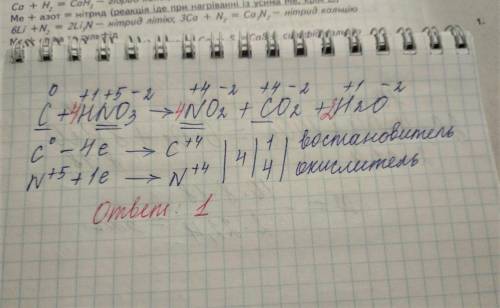 Ca + H₂ = CaH₂ –
Me + азот = нітрид (реакція іде при нагріванні із усіма
6Li + N₂ = 2Li₃N – нітрид літію; 3Ca + N₂ = Ca₃N₂ – нітрид кальцію
1.
0 +1 +5 -2 +4 -2 +4 -2 +1 -2
C + 4HNO₃ → 4NO₂ + CO₂ + 2H₂O
C⁰ - 4e → C⁺⁴ | 4 | 1 | востановитель
N⁺⁵ + 1e → N⁺⁴ | | 4 | окислитель
Ответ: 1